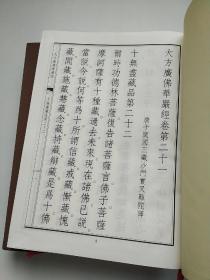 大方廣佛華嚴經卷第二十一
唐于闐國三藏沙門實叉難陀譯
十無盡藏品第二十二
爾時功德林菩薩復告諸菩薩言佛子菩薩
摩訶薩有十種藏過去未來現在諸佛已說
當說今說何等為十所謂信藏戒藏慚藏愧
藏聞藏施藏慧藏念藏持藏辯藏是為十佛